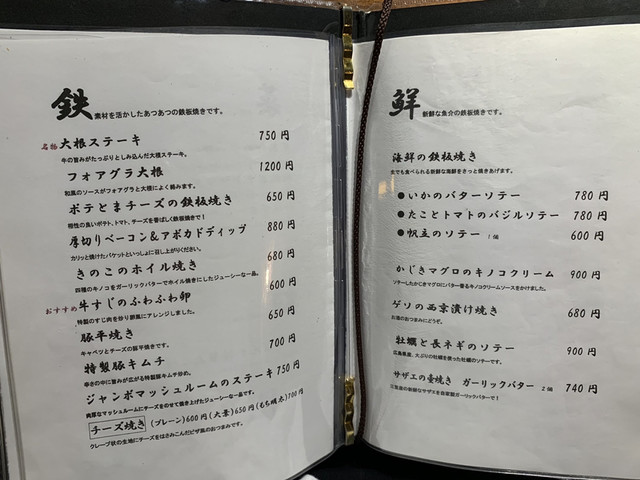 鉄 素材を活かしたあつあつの鉄板焼きです。
名物 大根ステーキ 750円
牛の旨みがたっぷりとしみ込んだ大根ステーキ。
フォアグラ大根 1200円
和風のソースがフォアグラと大根によく絡みます。
ポテとまチーズの鉄板焼き 650円
相性の良いポテト、トマト、チーズを香ばしく鉄板焼きで!
厚切りベーコン&アボカドディップ 880円
カリッと焼けたバケットといっしょに召し上がりください。
きのこのホイル焼き 680円
四種のキノコをガーリックバターでホイル焼きにしたジューシーな一品。
おすすめ 牛すじのふわふわ卵 600円
特製のすじ肉を炒り卵風にアレンジしました。
豚平焼き 650円
キャベツとチーズの豚平焼きです。
特製豚キムチ 700円
辛さの中に旨みが広がる特製豚キムチ炒め。
ジャンボマッシュルームのステーキ 750円
肉厚なマッシュルームにチーズをのせて焼き上げたジューシーな一品です。
チーズ焼き (プレーン)600円 (大葉)650円 (もち明太)700円
クレープ状の生地にチーズをはさみこんだピザ風のおつまみです。
鮮 新鮮な魚介の鉄板焼きです。
海鮮の鉄板焼き
生でも食べられる新鮮な海鮮をさっと焼きあげます。
●いかのバターソテー 780円
●たことトマトのバジルソテー 780円
●帆立のソテー 1個 600円
かじきマグロのキノコクリーム 900円
ソテーしたかじきマグロにバター香るキノコクリームソースをかけました。
ゲソの西京漬け焼き 680円
お酒のおつまみにどうぞ。
牡蠣と長ネギのソテー 900円
広島県産、大ぶりの牡蠣を使った牡蠣のソテーです。
サザエの壷焼き ガーリックバター 2個 740円
サザエを自家製ガーリックバターで!